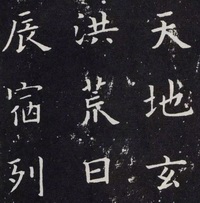 天地玄
洪荒日
辰宿列